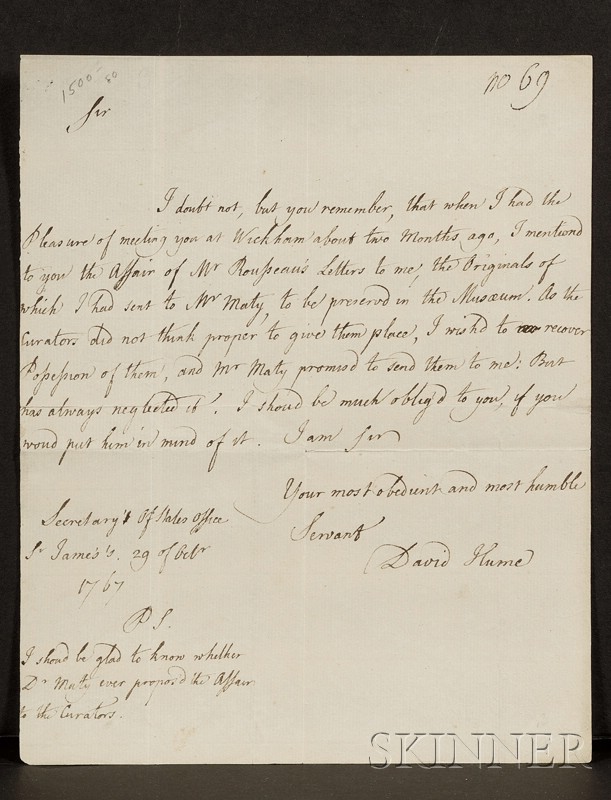 1500 -
80
no 69
Sir
I doubt not, but you remember, that when I had the
Pleasure of meeting you at Wickham about two Months ago, I mentiond
to you the Affair of Mr Rousseau's Letters to me, the Originals of
which I had sent to Mr Maty, to be preservd in the Musæum. As the
Curators did not think proper to give them place, I wishd to recover
Possession of them, and Mr Maty promisd to send them to me: But
has always neglected it. I shoud be much oblig'd to you, if you
woud put him in mind of it. I am Sir
Your most obedient and most humble
Servant
David Hume
Secretary's Of States Office
St James's. 29 of Octr
1767
P S.
I shoud be glad to know whether
Dr Maty ever proposd the Affair
to the Curators.
SKINNER